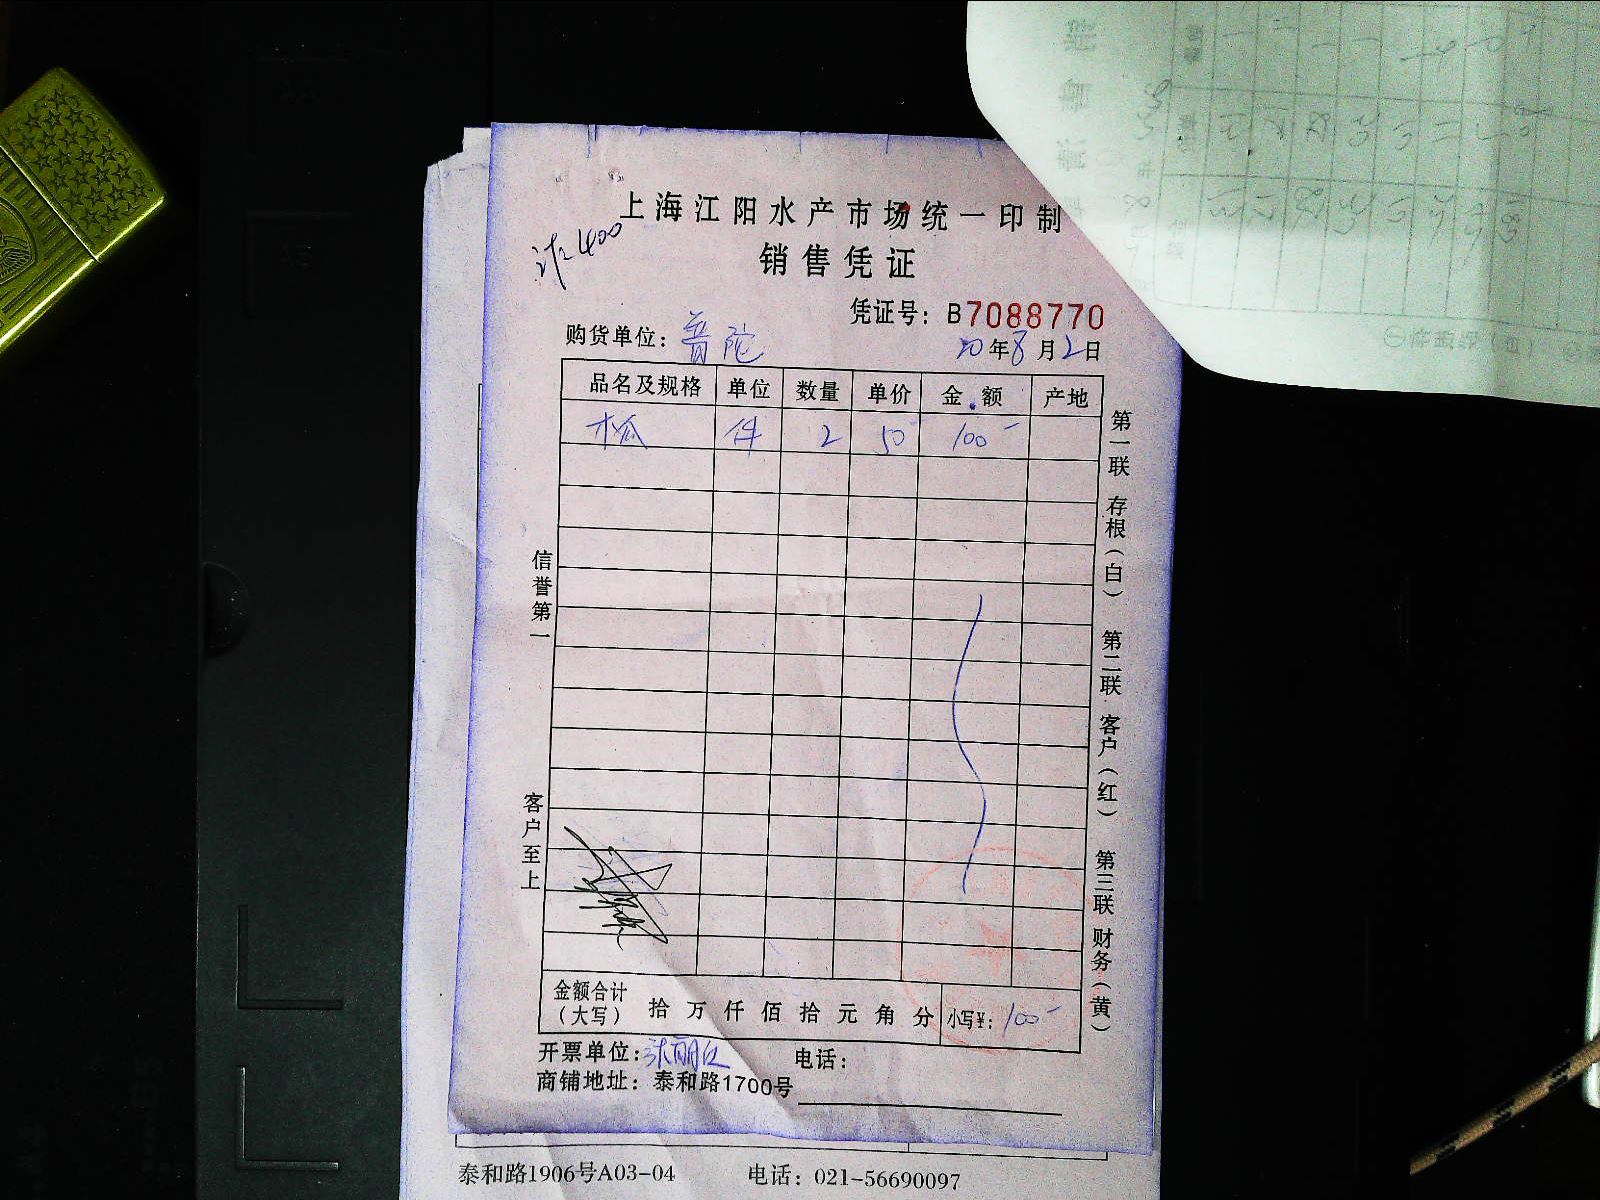 上海江阳水产市场统一印制
400
销售凭证
凭证号：B7088770
购货单位：普陀
20年8月2日
品名及规格 单位 数量 单价 金额 产地
件 2 50 100-
信誉第一
客户至上
第一联 存根（白） 第二联 客户（红） 第三联 财务（黄）
金额合计（大写） 拾 万 仟 佰 拾 元 角 分 小写¥：100-
开票单位： 电话：
商铺地址：泰和路1700号
泰和路1906号A03-04 电话：021-56690097